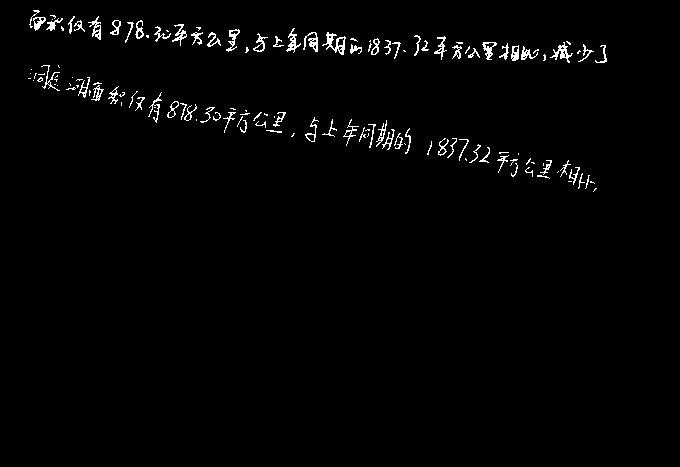 面积仅有878.30平方公里,与上年同期的1837.32平方公里相比,减少了
洞庭湖面积仅有878.30平方公里,与上年同期的1837.32平方公里相比,